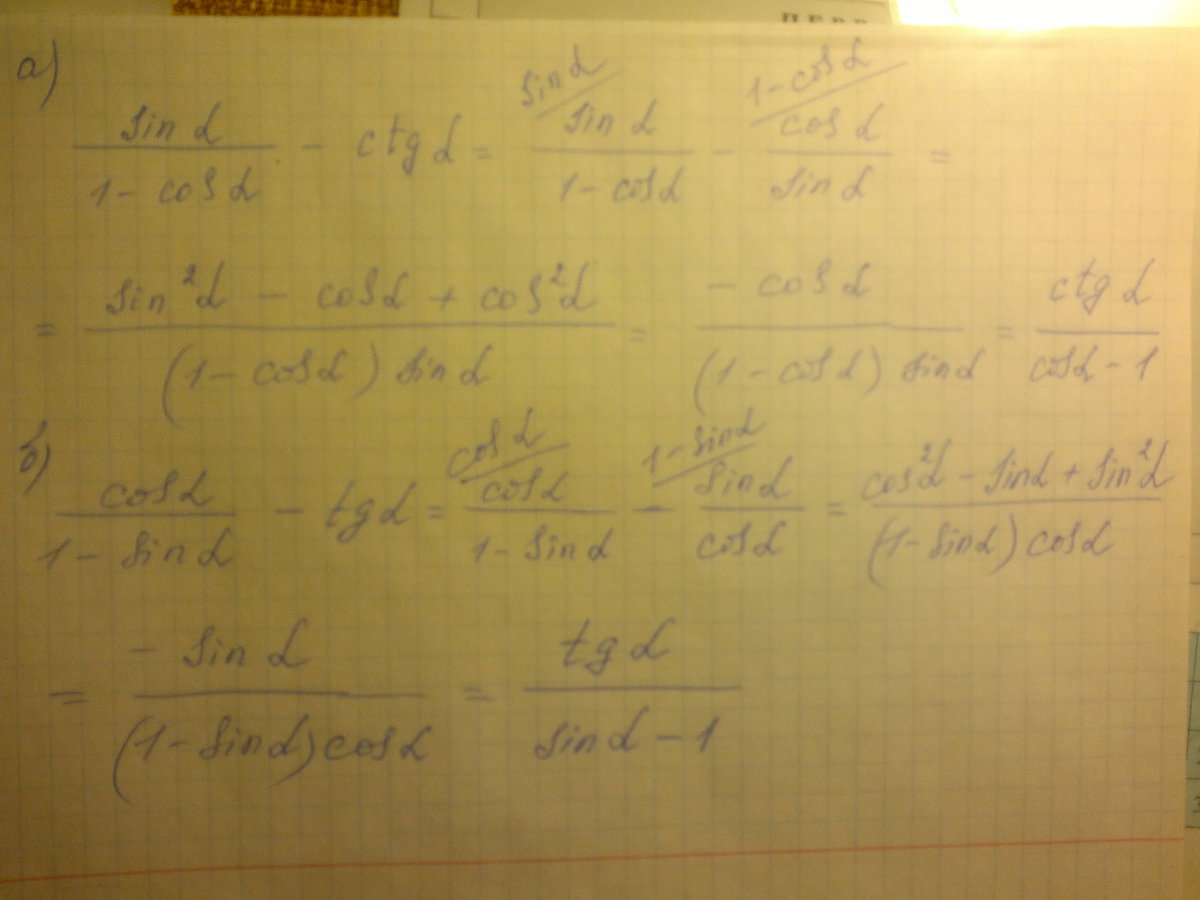 ПЕРВ
а)
sin α / (1 - cos α) - ctg α = sin α / (1 - cos α) (sin α) - cos α / sin α (1 - cos α) =
= (sin²α - cos α + cos²α) / ((1 - cos α) sin α) = - cos α / ((1 - cos α) sin α) = ctg α / (cos α - 1)
б)
cos α / (1 - sin α) - tg α = cos α / (1 - sin α) (cos α) - sin α / cos α (1 - sin α) = (cos²α - sin α + sin²α) / ((1 - sin α) cos α)
= - sin α / ((1 - sin α) cos α) = tg α / (sin α - 1)